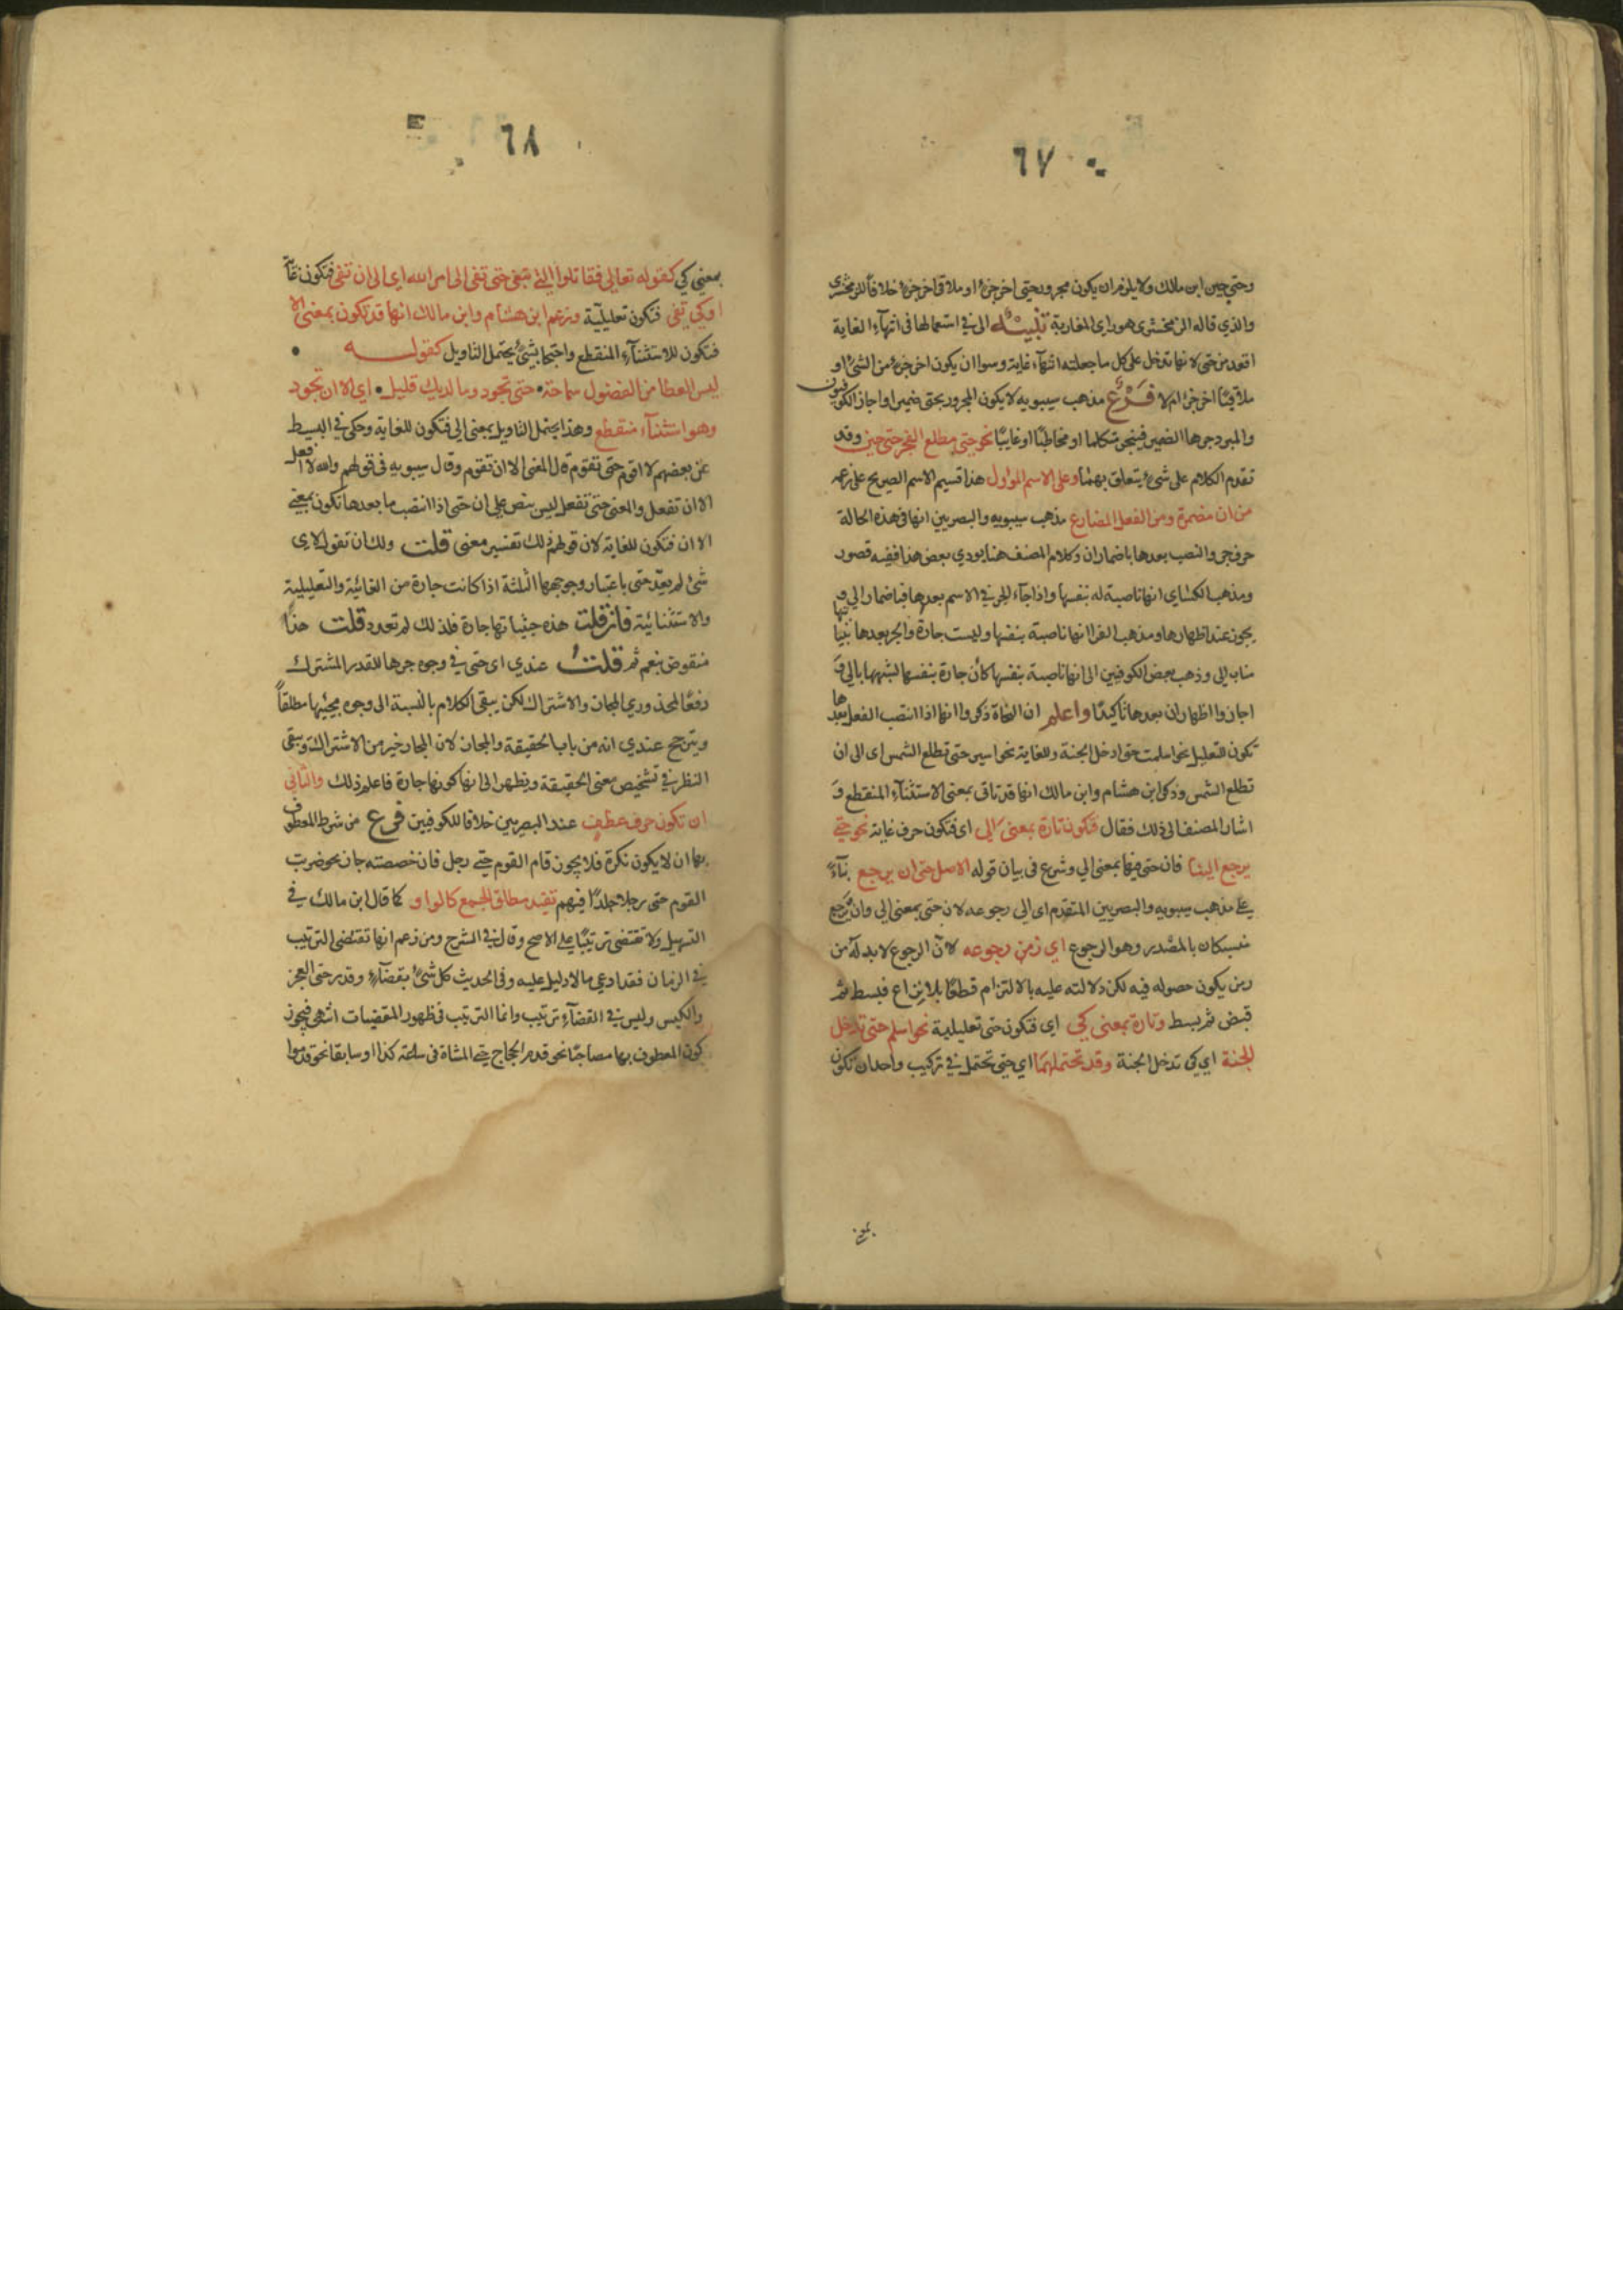 ٦٧
وحتى حين ابن مالك ولا يلزم ان يكون مجرور حتى اخر جزء او ملاقى اخر جزء خلافاً للزمخشرى
والذي قاله الزمخشرى هو راى المغاربة تنبيه الى فى استعمالها فى انتهآء الغاية
اقعد من حتى لانها تدخل على كل ما جعلته انتهآء غاية وسوا ان يكون اخر جزء من الشئ او
ملاقيًا اخر جزء ام لا فرع مذهب سيبويه لا يكون المجرور بحتى ضميرا واجاز الكوفيون
والمبرد جرها الضمير فينجر متكلما او مخاطبًا او غايبًا نحو حتى مطلع الفجر حتى حين وقد
تقدم الكلام على شئ يتعلق بهما وعلى الاسم المؤول هذا قسيم الاسم الصريح على زعمه
من ان مضمرة ومن الفعل المضارع مذهب سيبويه والبصريين انها فى هذه الحالة
حرف جر والنصب بعدها باضمار ان وكلام المصنف هنا يودي بعض هذا ففيه قصور
ومذهب الكسّاي انها ناصبة له بنفسها واذا جآء الجر فى الاسم بعدها فباضمار الى و
يجوز عنده اظهارها ومذهب الفرا انها ناصبة بنفسها وليست جارة والجر بعدها نيابتها
مناب الى وذهب بعض الكوفيين الى انها ناصبة بنفسها كأن جارة بنفسها لشبهها بالى وَ
اجازوا اظهار ان بعدها تأكيدًا واعلم ان النحاة ذكروا انها اذا انتصب الفعل بعدها
تكون للتعليل نحو اسلمت حتى ادخل الجنة وللغاية نحو اسير حتى تطلع الشمس اى الى ان
تطلع الشمس وذكر ابن هشام وابن مالك انها قد تاتى بمعنى الاستثنآء المنقطع وَ
اشار المصنف الى ذلك فقال فتكون تارة بمعنى الى اى فتكون حرف غاية نحو حتى
يرجع الينا فان حتى فيها بمعنى الى وشرع فى بيان قوله الاصل حتى ان يرجع بنآءً
على مذهب سيبويه والبصريين المتقدم اى الى رجوعه لان حتى بمعنى الى وان يرجع
منسبكان بالمصدر وهو الرجوع اي زمن رجوعه لان الرجوع لا بد له من
زمن يكون حصوله فيه لكن دلالته عليه بالالتزام قطعًا بلا نزاع فبسط ثم
قبض ثم بسط وتارة بمعنى كى اي فتكون حتى تعليلية نحو اسلم حتى تدخل
الجنة اي كي تدخل الجنة وقد تحتملهما اي حتى تحتمل فى تركيب واحد ان تكون
٦٨
بمعنى كي كقوله تعالى فقاتلوا التى تبغى حتى تفى الى امر الله اى الى ان تفى فتكون غايةً
او كي تفى فتكون تعليلية وزعم ابن هشام وابن مالك انها قد تكون بمعنى الا
فتكون للاستثنآء المنقطع واحتجا بشئ يحتمل التاويل كقوله
ليس العطا من الفضول سماحة حتى تجود وما لديك قليل اي الا ان تجود
وهو استثنآء منقطع وهذا يحتمل التاويل بمعنى الى فتكون للغاية وحكى فى البسيط
عن بعضهم لا اقوم حتى تقوم قال المعنى الا ان تقوم وقال سيبويه فى قولهم والله لا افعل
الا ان تفعل والمعنى حتى تفعل ليس بنص على ان حتى اذا انتصب ما بعدها تكون بمعنى
الا ان فتكون للغاية لان قولهم ذلك تفسير معنى قلت ولك ان تقول لاى
شئ لم يعد حتى باعتبار وجوهها الثلثة اذا كانت جارة من الغائية والتعليلية
والاستثنائية فان قلت هذه حيثياتها جارة فلذلك لم تعدد قلت هذا
منقوض بنعم ثم قلت عندي اى حتى فى وجوه جرها للقدر المشترك
دفعًا لمحذوري المجاز والاشتراك لكن يبقى الكلام بالنسبة الى وجوه مجيئها مطلقاً
ويترجح عندي انه من باب الحقيقة والمجاز لان المجاز خير من الاشتراك ويبقى
النظر فى تشخيص معنى الحقيقة ويظهر الى انها كونها جارة فاعلم ذلك والثانى
ان تكون حرف عطف عند البصريين خلافا للكوفيين فرع من شرط المعطوف
بها ان لا يكون نكرة فلا يجوز قام القوم حتى رجل فان خصصته جاز نحو ضربت
القوم حتى رجلا جلدًا فيهم تفيد مطلق الجمع كالواو كما قال ابن مالك فى
التسهيل ولا تقتضى ترتيبًا على الاصح وقال فى الشرح ومن زعم انها تقتضى الترتيب
فى الزمان فقد ادعى ما لا دليل عليه وفى الحديث كل شئ بقضآءٍ وقدر حتى العجز
والكيس وليس فى القضآء ترتيب وانما الترتيب فى ظهور المقضيات انتهى فيجوز
كون المعطوف بها مصاحبًا نحو قدم الحجاج حتى المشاة فى ساعة كذا او سابقا نحو قدموا